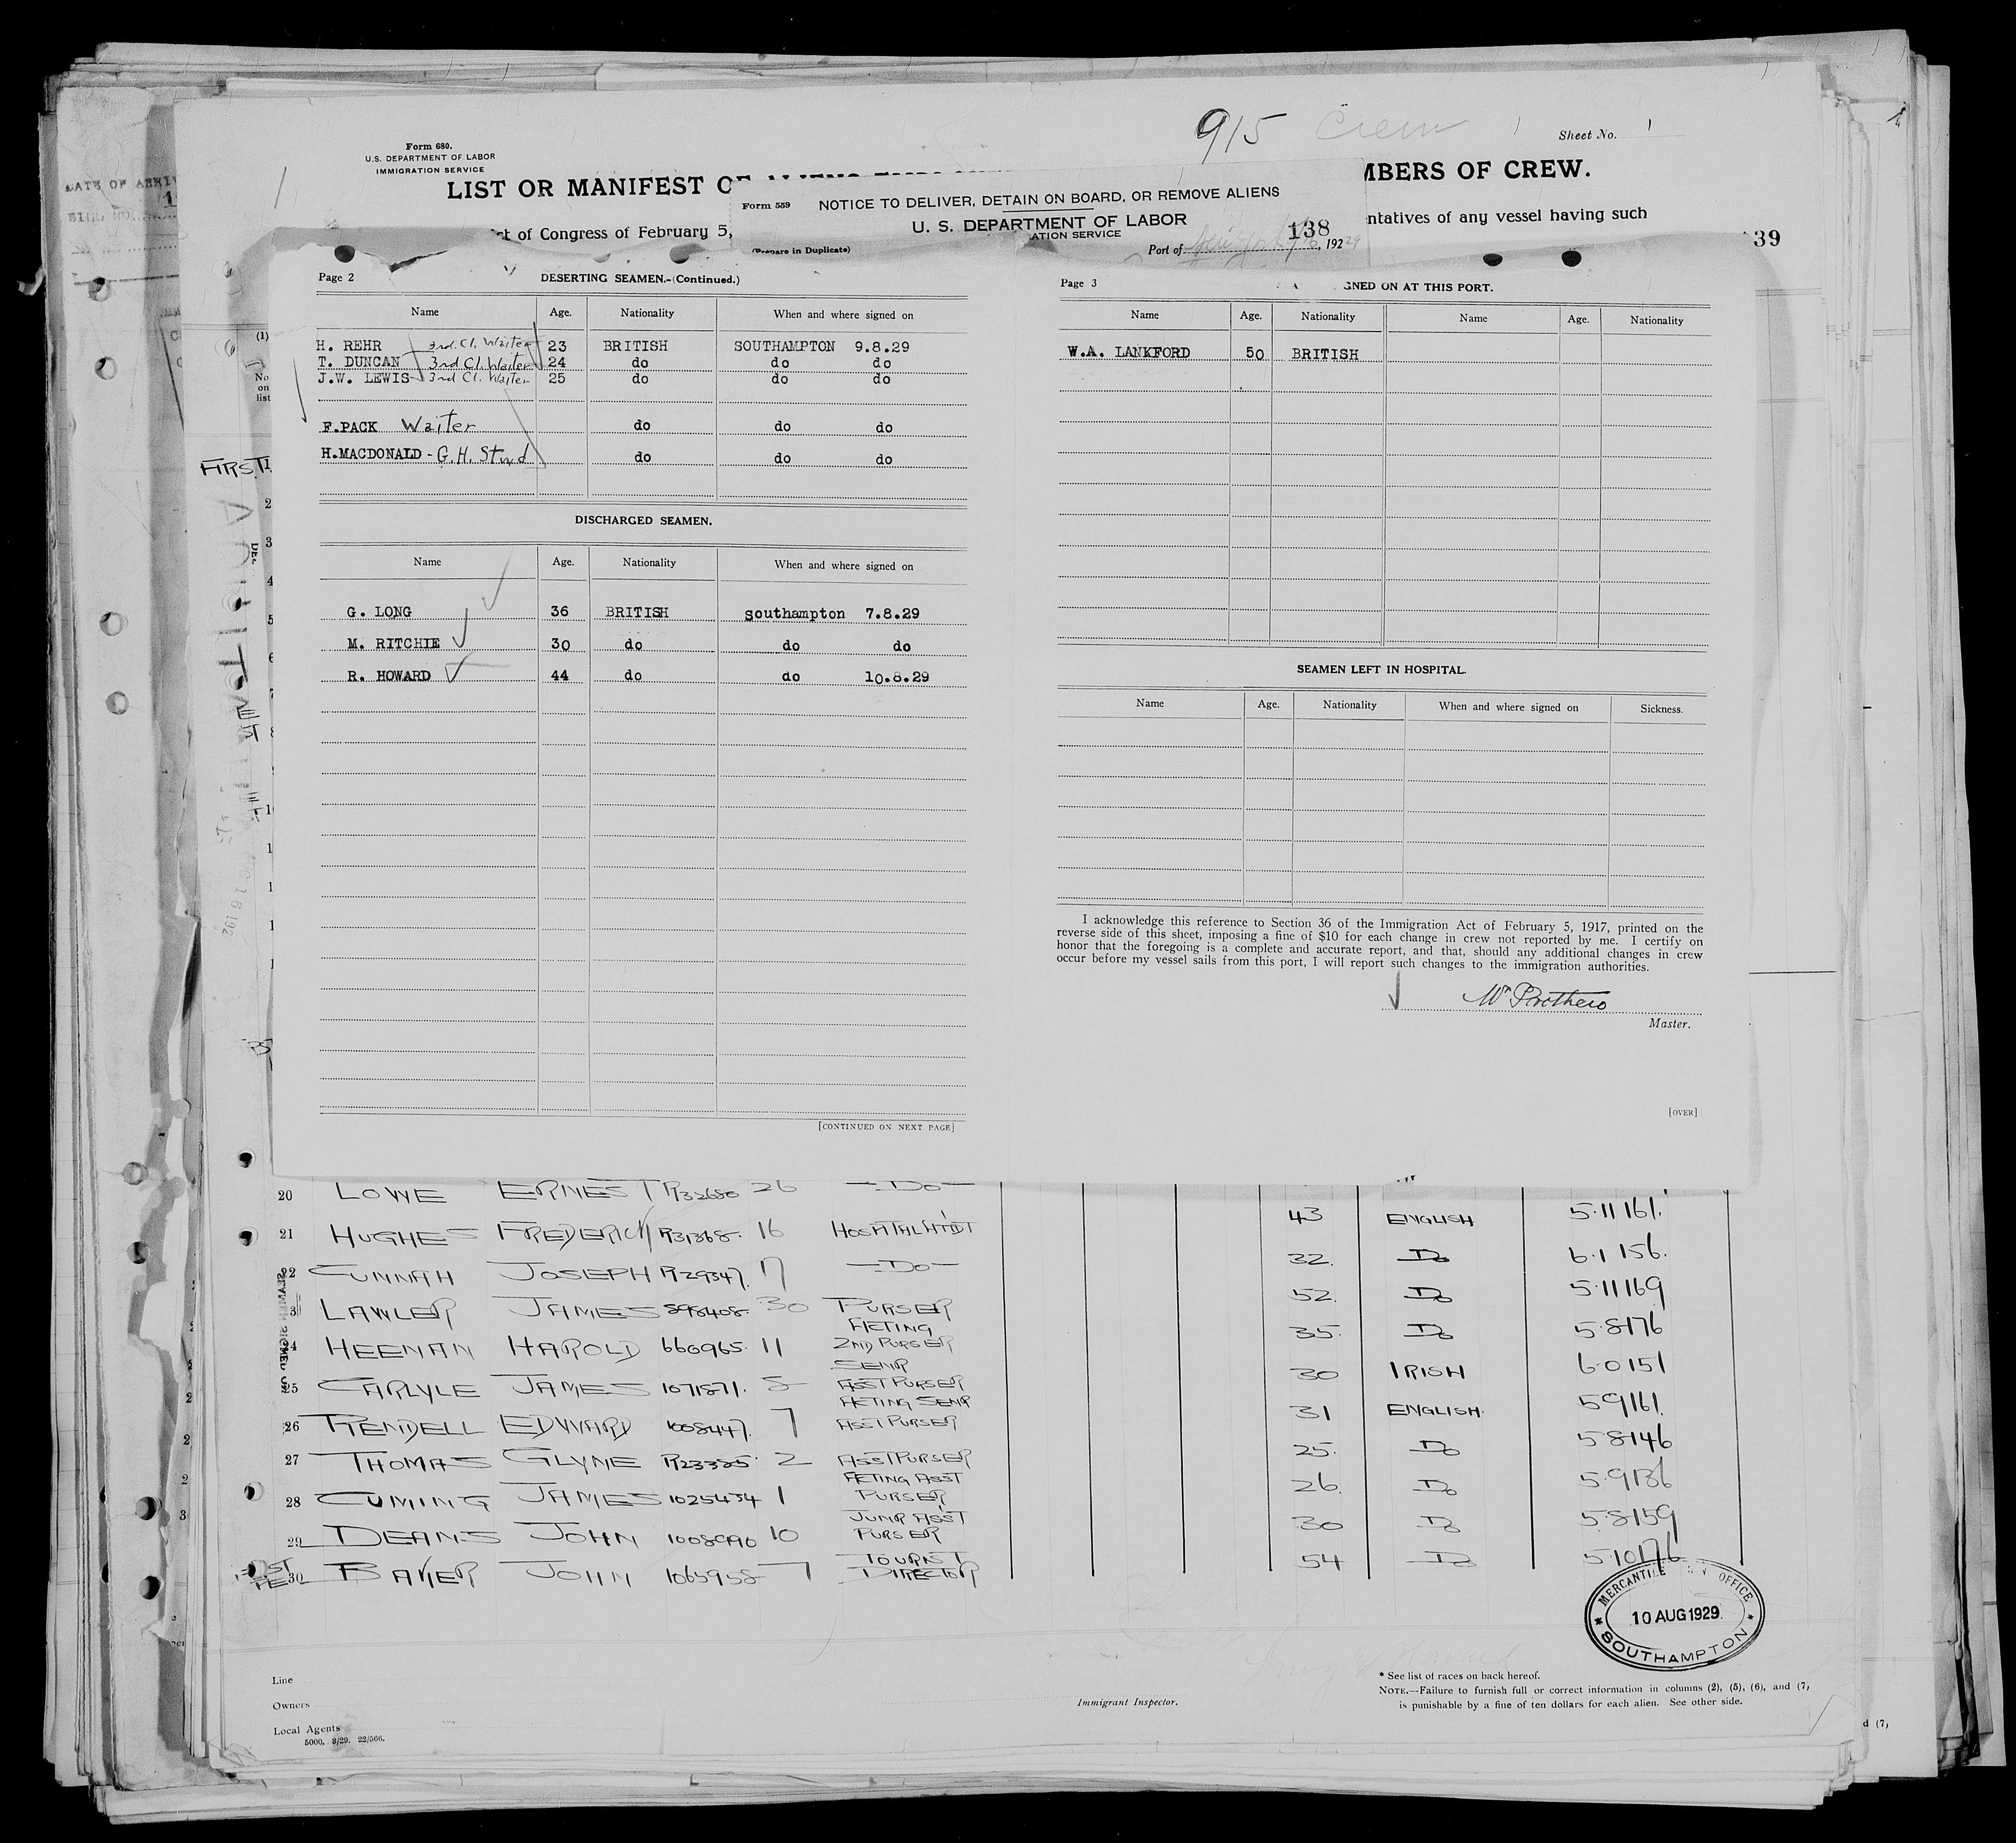 915 Crew 1 Sheet No. 1
Form 680.
U.S. DEPARTMENT OF LABOR
IMMIGRATION SERVICE
LIST OR MANIFEST OF ALIENS MBERS OF CREW.
Form 559 NOTICE TO DELIVER, DETAIN ON BOARD, OR REMOVE ALIENS
U. S. DEPARTMENT OF LABOR
ATION SERVICE
(Prepare in Duplicate) Port of 138, 1929
ct of Congress of February 5, entatives of any vessel having such
39
DATE OF ARRIV
Page 2 DESERTING SEAMEN.-(Continued.)
Name Age. Nationality When and where signed on
H. REHR 3rd. Cl. Waiter 23 BRITISH SOUTHAMPTON 9.8.29
T. DUNCAN 3rd Cl. Waiter 24 do do do
J.W. LEWIS 3rd Cl. Waiter 25 do do do
F.PACK Waiter do do do
H.MACDONALD - G.H. Stwd do do do
DISCHARGED SEAMEN.
Name Age. Nationality When and where signed on
G. LONG 36 BRITISH southampton 7.8.29
M. RITCHIE 30 do do do
R. HOWARD 44 do do 10.8.29
[CONTINUED ON NEXT PAGE]
Page 3 GNED ON AT THIS PORT.
Name Age. Nationality Name Age. Nationality
W.A. LANKFORD 50 BRITISH
SEAMEN LEFT IN HOSPITAL.
Name Age. Nationality When and where signed on Sickness.
I acknowledge this reference to Section 36 of the Immigration Act of February 5, 1917, printed on the
reverse side of this sheet, imposing a fine of $10 for each change in crew not reported by me. I certify on
honor that the foregoing is a complete and accurate report, and that, should any additional changes in crew
occur before my vessel sails from this port, I will report such changes to the immigration authorities.
Wm Prothero
Master.
[OVER]
(1)
No
on
list
FIRST 1
20 LOWE ERNEST R32680 26 -Do-
21 HUGHES FREDERICK R31368. 16 HOSPITAL ATTDT 43 ENGLISH 5.11 161.
22 CUNNAH JOSEPH R29347. 17 -Do- 32. Do 6.1 156.
3 LAWLER JAMES 898408 30 PURSER 52. Do 5.11 169
4 HEENAN HAROLD 660965. 11 ACTING 2ND PURSER 35. Do 5.8 176
25 CARLYLE JAMES 1071871. 5 SENR ASST PURSER 30 IRISH 6.0 151
26 RENDELL EDWARD 1008447. 7 ACTING SENR ASST PURSER 31 ENGLISH. 5.9 161.
27 THOMAS GLYNE R23385. 2 ASST PURSER 25. Do 5.8 146
28 CUMING JAMES 1025434 1 ACTING ASST PURSER 26. Do 5.9 136
29 DEANS JOHN 1008990 10 JUNR ASST PURSER 30 Do 5.8 159
30 BAKER JOHN 1065958 7 TOURIST DIRECTOR 54 Do 5.10 176
MERCANTILE OFFICE
10 AUG 1929
SOUTHAMPTON
Line
Owners
Local Agents
5000. 8/29. 22/566.
Immigrant Inspector.
* See list of races on back hereof.
NOTE.—Failure to furnish full or correct information in columns (2), (5), (6), and (7,
is punishable by a fine of ten dollars for each alien. See other side.
d (7,